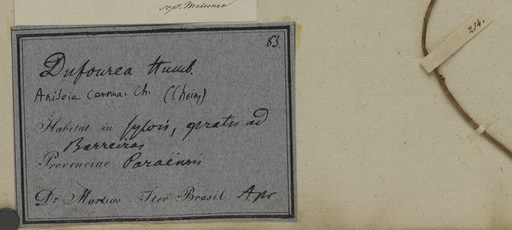 sept. Meissner
83.
Dufourea Humb.
Aniseia cernua. Ch. (Choisy)
Habitat in sylvis, pratis ad
Barreiras
Provinciae Paraënsis
Dr Martius Iter Brasil. Apr
214.